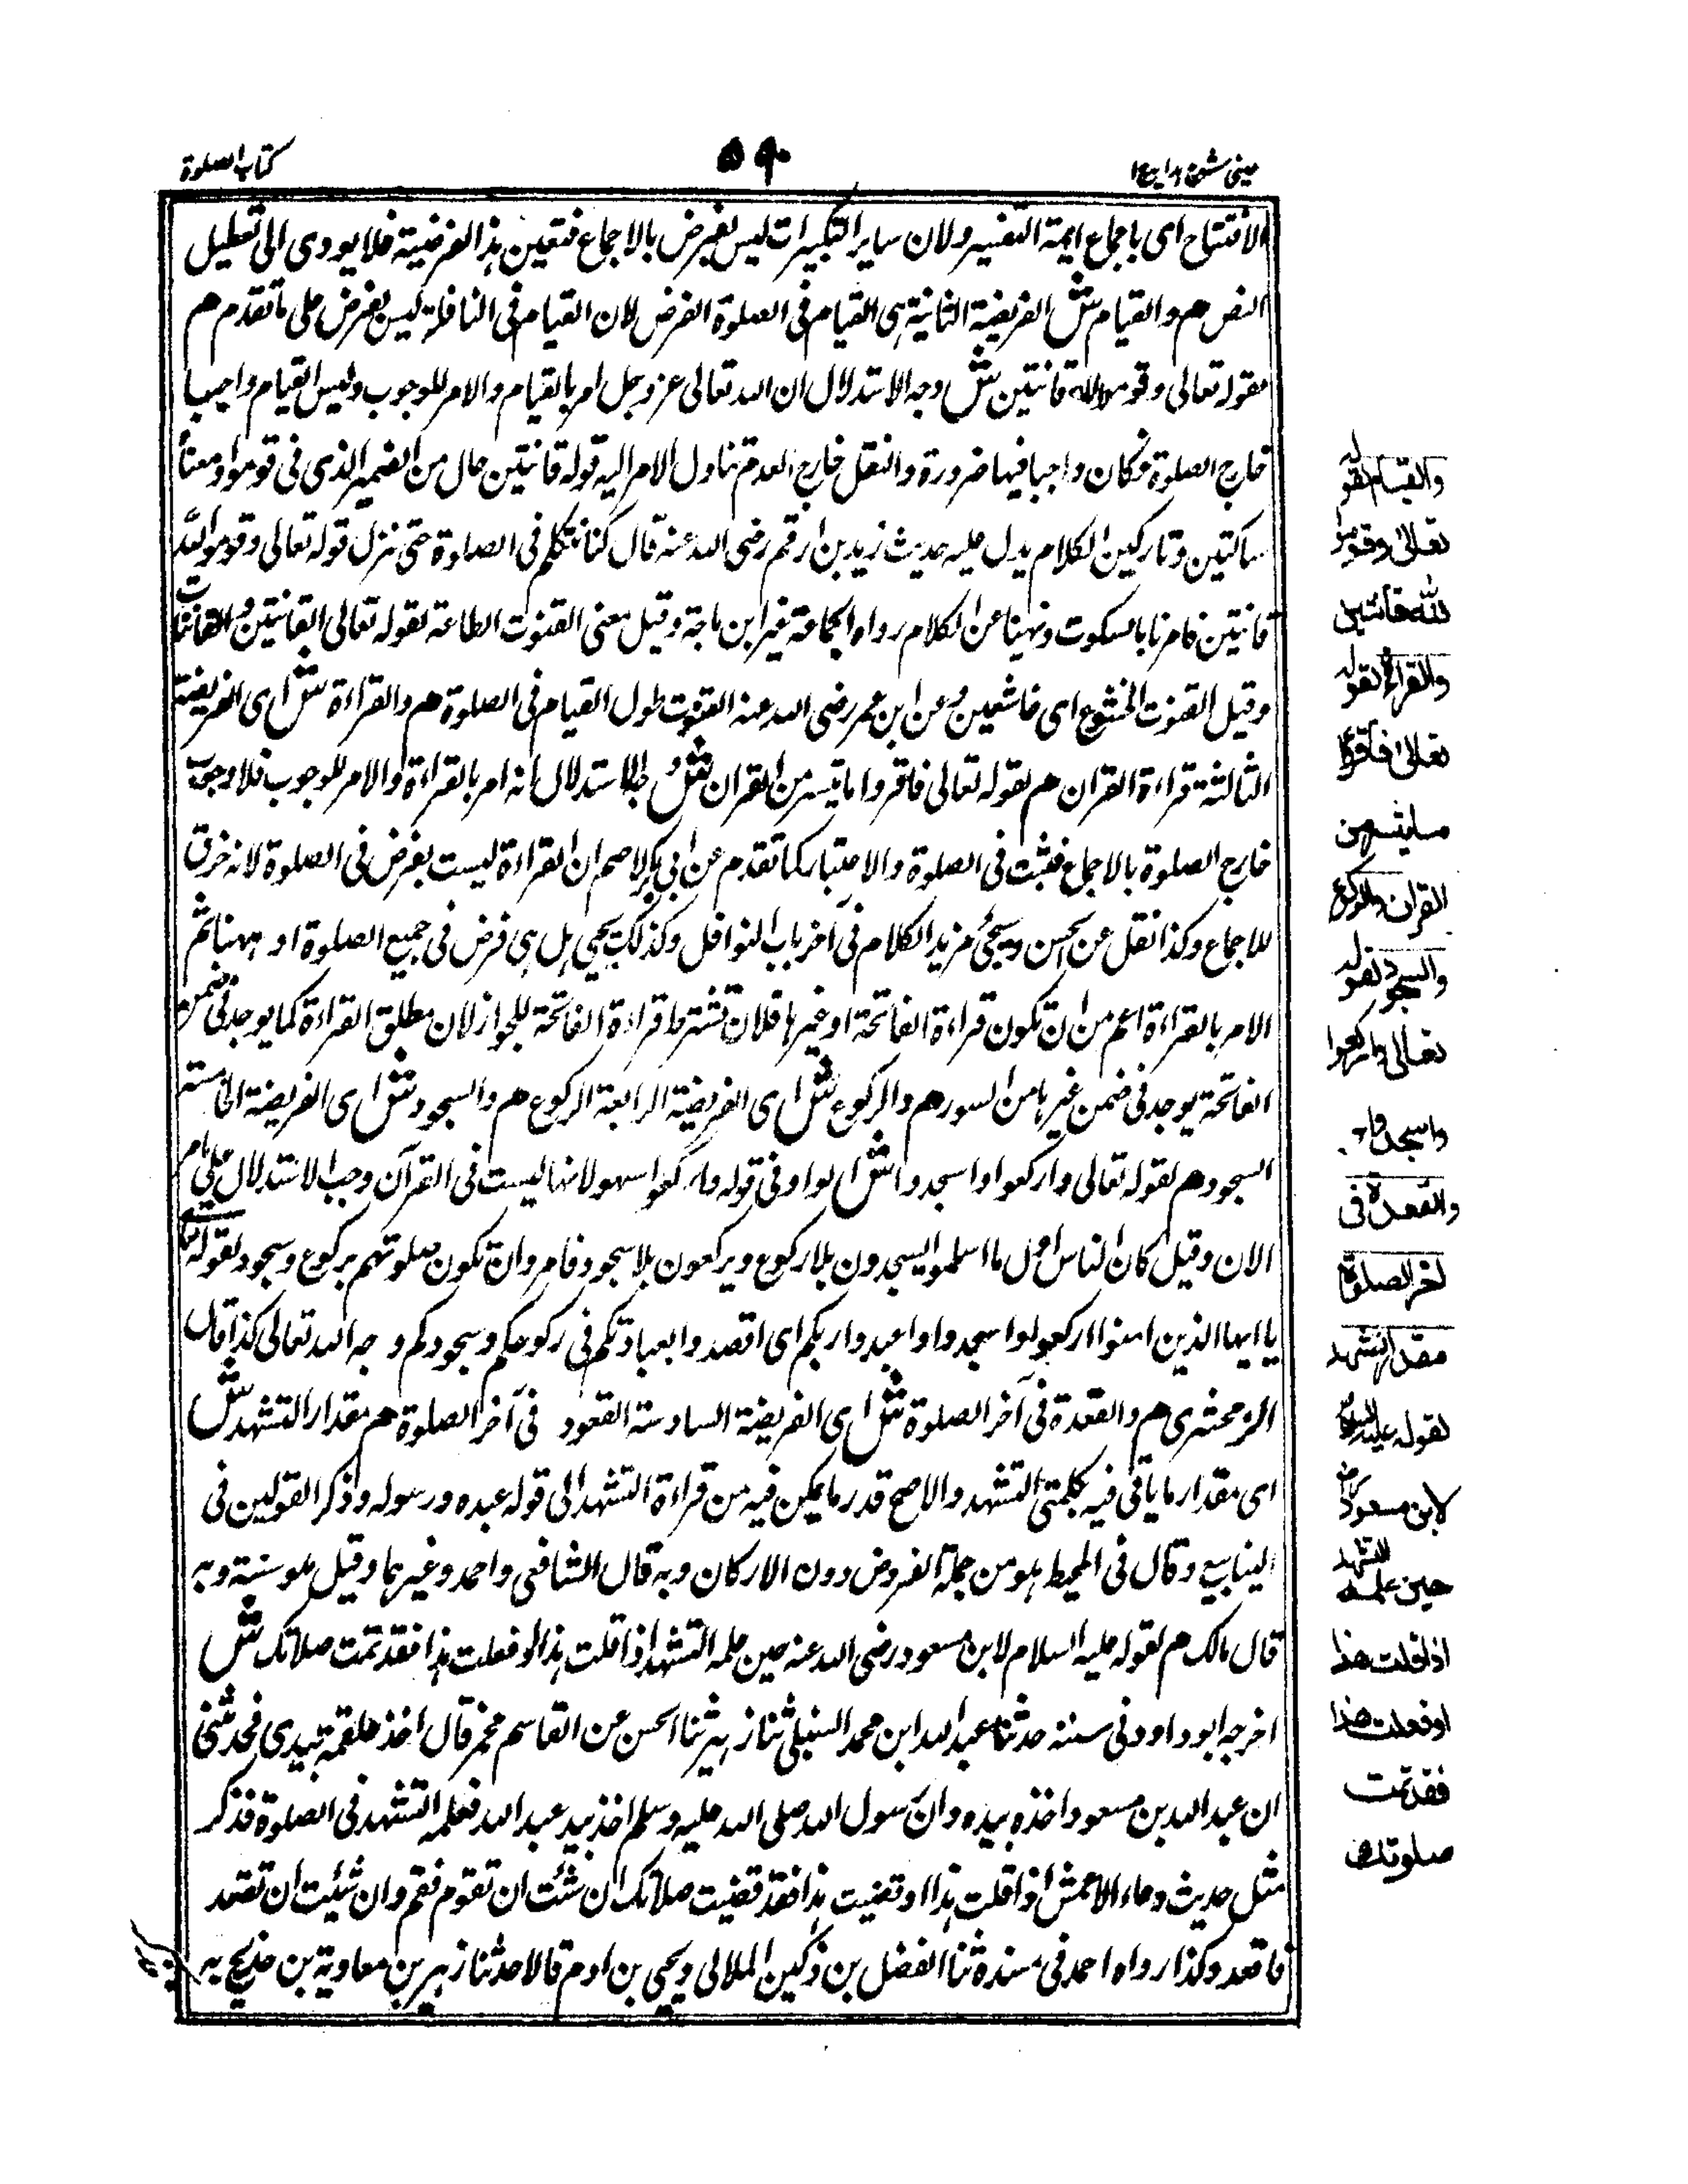 عينى شرح هدايه ج١
٥٩٠
كتاب الصلوة
الافتتاح اى باجماع ايمة التفسير ولان ساير التكبيرات ليس بفرض بالاجماع فتعين هذا الفرضية فلا يودى الى تعطيل
النص هم والقيام ش الفريضة الثانية هى القيام فى الصلوة الفرض لان القيام فى النافلة ليس بفرض على ما تقدم هم
لقوله تعالى وقوموا لله قانتين ش وجه الاستدلال ان الله تعالى عز وجل امر بالقيام والامر للوجوب وليس القيام واجبا
خارج الصلوة فكان واجبا فيها ضرورة والنفل خارج لعدم تناول الامر اليه قوله قانتين حال من الضمير الذى فى قوموا ومعناه
ساكتين وتاركين الكلام يدل عليه حديث زيد بن ارقم رضى الله عنه قال كنا نتكلم فى الصلوة حتى نزل قوله تعالى وقوموا لله
قانتين فامرنا بالسكوت ونهينا عن الكلام رواه الجماعة غير ابن ماجة وقيل معنى القنوت الطاعة لقوله تعالى القانتين والقانتات
وقيل القنوت الخشوع اى خاشعين وعن ابن عمر رضى الله عنه القنوت طول القيام فى الصلوة هم والقراءة ش اى الفريضة
الثالثة قراءة القران هم لقوله تعالى فاقروا ما تيسر من القران ش وجه الاستدلال انه امر بالقراءة والامر للوجوب فلا وجوب
خارج الصلوة بالاجماع فثبت فى الصلوة والاعتبار كما تقدم عن ابى بكر الاصم ان القراءة ليست بفرض فى الصلوة لانه خرق
للاجماع وكذا نقل عن الحسن وسيجئ مزيد الكلام فى آخر باب النوافل وكذلك يجئ هل هى فرض فى جميع الصلوة او ههنا ثم
الامر بالقراءة اعم من ان تكون قراءة الفاتحة او غيرها فلان تشترط قراءة الفاتحة للجواز لان مطلق القراءة كما يوجد فى ضمن
الفاتحة يوجد فى ضمن غيرها من السور هم والركوع ش اى الفريضة الرابعة الركوع هم والسجود ش اى الفريضة الخامسة
السجود هم لقوله تعالى واركعوا واسجدوا ش الواو فى قوله واركعوا سهو لانها ليست فى القرآن وجه الاستدلال على ما مر
الان وقيل كان الناس اول ما اسلموا يسجدون بلا ركوع ويركعون بلا سجود فامروا ان تكون صلوتهم بركوع وسجود لقوله تعالى
يا ايها الذين امنوا اركعوا واسجدوا واعبدوا ربكم اى اقصدوا بعبادتكم فى ركوعكم وسجودكم وجه الله تعالى كذا قال
الزمخشرى هم والقعدة فى آخر الصلوة ش اى الفريضة السادسة القعود فى آخر الصلوة هم مقدار التشهد ش
اى مقدار ما ياتى فيه بكلمتى التشهد والاصح قدر ما يمكن فيه من قراءة التشهد الى قوله عبده ورسوله وذكر القولين فى
الينابيع وقال فى المحيط هو من جملة الفروض دون الاركان وبه قال الشافعى واحمد وغيرهما وقيل هو سنة وبه
قال مالك هم لقوله عليه السلام لابن مسعود رضى الله عنه حين علمه التشهد اذا قلت هذا او فعلت هذا فقد تمت صلاتك ش
اخرجه ابو داود فى سننه حدثنا عبد الله ابن محمد النفيلى ثنا زهير ثنا الحسن عن القاسم مخمرة قال اخذ علقمة بيدى فحدثنى
ان عبد الله بن مسعود اخذه بيده وان رسول الله صلى الله عليه وسلم اخذ بيد عبد الله فعلمه التشهد فى الصلوة فذكر
مثل حديث دعاء الاعمش اذا قلت هذا او قضيت هذا فقد قضيت صلاتك ان شئت ان تقوم فقم وان شئت ان تقعد
فاقعد وكذا رواه احمد فى مسنده ثنا الفضل بن دكين الملالى ويحيى بن ادم قالا حدثنا زهير بن معاوية بن خديج به
والقيام لقوله
تعالى وقوموا
لله قانتين
والقراءة لقوله
تعالى فاقرؤا
ما تيسر من
القران والركوع
والسجود لقوله
تعالى واركعوا
واسجدوا
والقعدة فى
اخر الصلوة
مقدار التشهد
لقوله عليه السلام
لابن مسعود رض
حين علمه التشهد
اذا قلت هذا
او فعلت هذا
فقد تمت
صلوتك